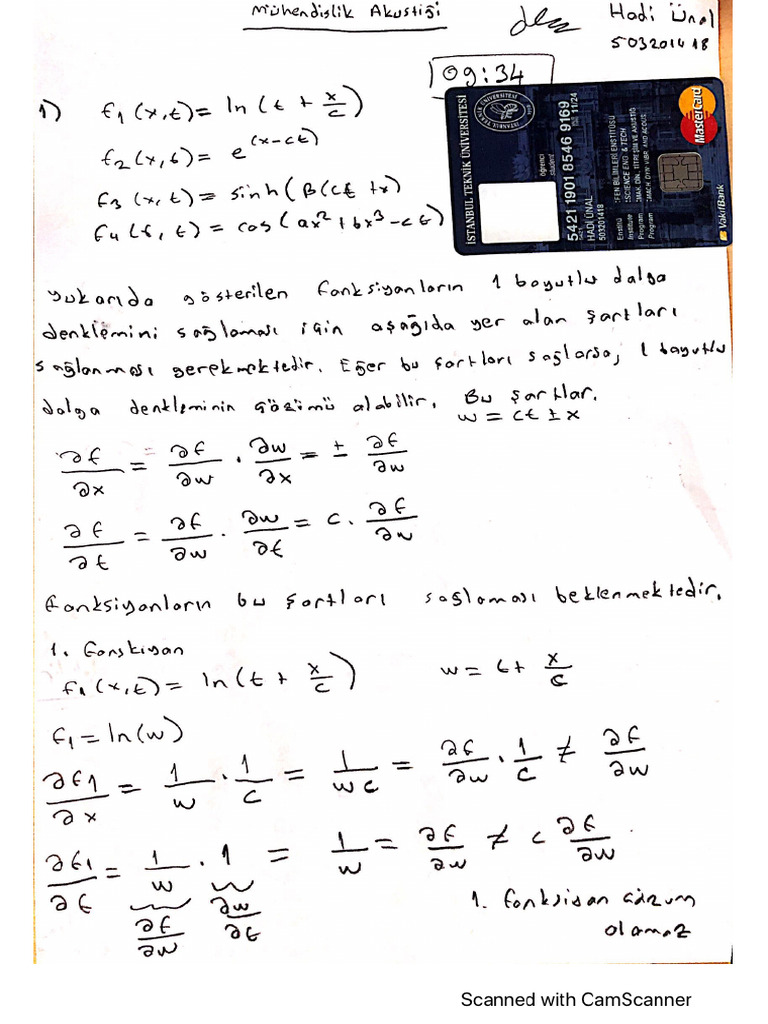 Mühendislik Akustiği
Hadi Ünal
503201418
09:34
İSTANBUL TEKNİK ÜNİVERSİTESİ
öğrenci
student
[card number omitted]
HADİ ÜNAL
503201418
Enstitü
Institute
Program
Program
MasterCard
VakıfBank
1) f1 (x,t) = ln (t + x/c)
f2 (x,t) = e^(x-ct)
f3 (x,t) = sinh (β(ct+x)
f4 (x,t) = cos(ax² + bx³ - ct)
Yukarıda gösterilen fonksiyonların 1 boyutlu dalga
denklemini sağlaması için aşağıda yer alan şartları
sağlanması gerekmektedir. Eğer bu şartları sağlarsa, 1 boyutlu
dalga denkleminin çözümü alabilir. Bu şartlar.
w = ct ± x
∂f/∂x = ∂f/∂w · ∂w/∂x = ± ∂f/∂w
∂f/∂t = ∂f/∂w · ∂w/∂t = c · ∂f/∂w
fonksiyonların bu şartları sağlaması beklenmektedir.
1. Fonskiyon
f1 (x,t) = ln(t + x/c)    w = t + x/c
f1 = ln(w)
∂f1/∂x = 1/w · 1/c = 1/wc = ∂f/∂w · 1/c ≠ ∂f/∂w
∂f1/∂t = 1/w · 1 = 1/w = ∂f/∂w ≠ c ∂f/∂w
∂f/∂w    ∂w/∂t
1. fonksiyon çözüm
olamaz
Scanned with CamScanner